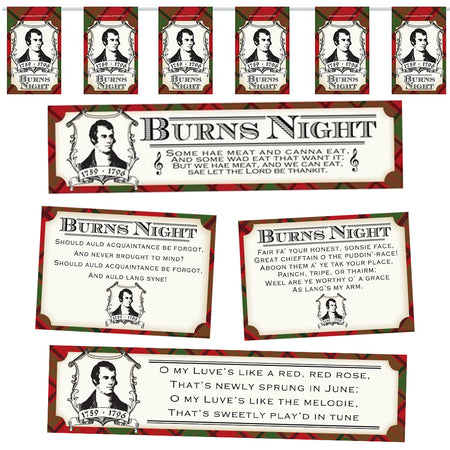 1759 - 1796
BURNS
NIGHT
1759 - 1796
BURNS
NIGHT
1759 - 1796
BURNS
NIGHT
1759 - 1796
BURNS
NIGHT
1759 - 1796
BURNS
NIGHT
1759 - 1796
BURNS
NIGHT
BURNS NIGHT
SOME HAE MEAT AND CANNA EAT,
AND SOME WAD EAT THAT WANT IT;
BUT WE HAE MEAT, AND WE CAN EAT,
SAE LET THE LORD BE THANKIT.
1759 - 1796
BURNS NIGHT
SHOULD AULD ACQUAINTANCE BE FORGOT,
AND NEVER BROUGHT TO MIND?
SHOULD AULD ACQUAINTANCE BE FORGOT,
AND AULD LANG SYNE!
1759 - 1796
BURNS NIGHT
FAIR FA' YOUR HONEST, SONSIE FACE,
GREAT CHIEFTAIN O THE PUDDIN'-RACE!
ABOON THEM A' YE TAK YOUR PLACE,
PAINCH, TRIPE, OR THAIRM:
WEEL ARE YE WORTHY O' A GRACE
AS LANG'S MY ARM.
1759 - 1796
O MY LUVE'S LIKE A RED, RED ROSE,
THAT'S NEWLY SPRUNG IN JUNE;
O MY LUVE'S LIKE THE MELODIE,
THAT'S SWEETLY PLAY'D IN TUNE
1759 - 1796